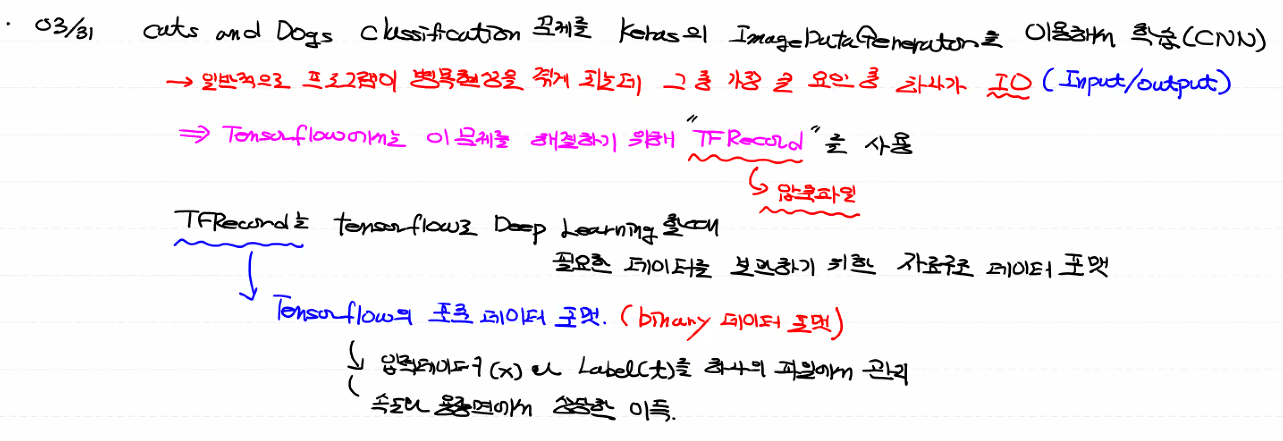 · 03/31 Cats and Dogs Classification 문제를 Keras의 ImageDataGenerator를 이용해서 학습(CNN)
→ 일반적으로 프로그램이 병목현상을 겪게 되는데 그 중 가장 큰 요인 중 하나가 IO (Input/output)
⇒ Tensorflow에서는 이 문제를 해결하기 위해 "TFRecord"를 사용
↳ 압축파일
TFRecord는 tensorflow로 Deep Learning 할때
필요한 데이터를 보관하기 위한 자료구조 데이터 포맷
Tensorflow의 표준 데이터 포맷. (binary 데이터 포맷)
입력데이터(x)와 Label(t)를 하나의 파일에서 관리
속도나 용량면에서 상당한 이득.